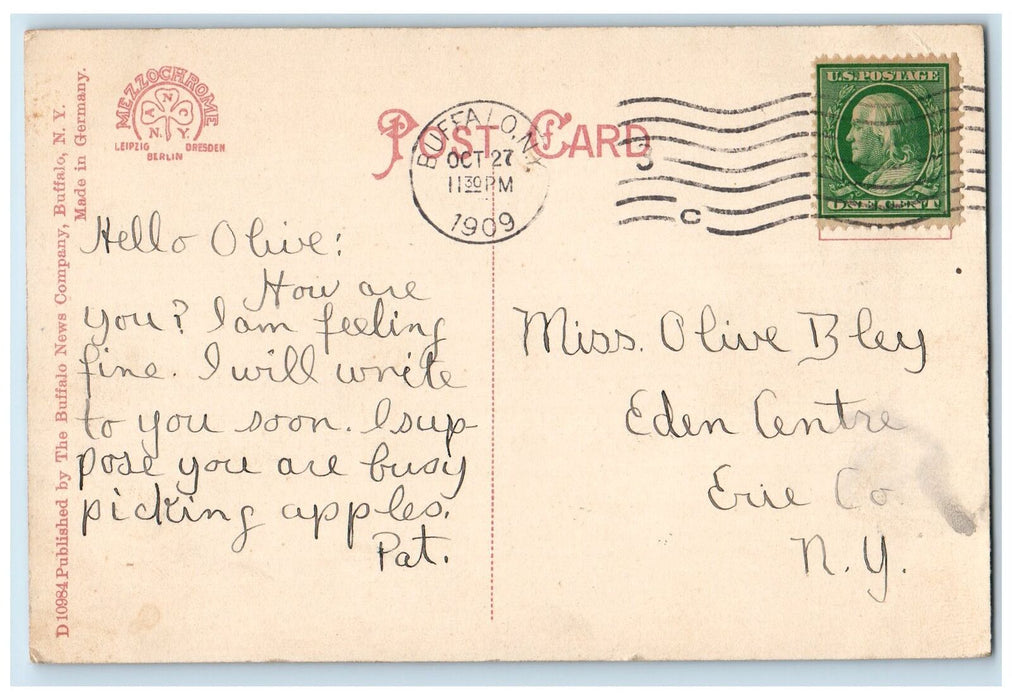 MEZZOCHROME
A N C
N. Y.
LEIPZIG DRESDEN
BERLIN
POST CARD
BUFFALO, N.Y.
OCT 27
11 30 PM
1909
3
C
U.S. POSTAGE
ONE CENT
D 10984 Published by The Buffalo News Company, Buffalo, N. Y.
Made in Germany.
Hello Olive:
How are
you? I am feeling
fine. I will write
to you soon. I sup-
pose you are busy
picking apples.
Pat.
Miss. Olive Bley
Eden Centre
Erie Co.
N. Y.